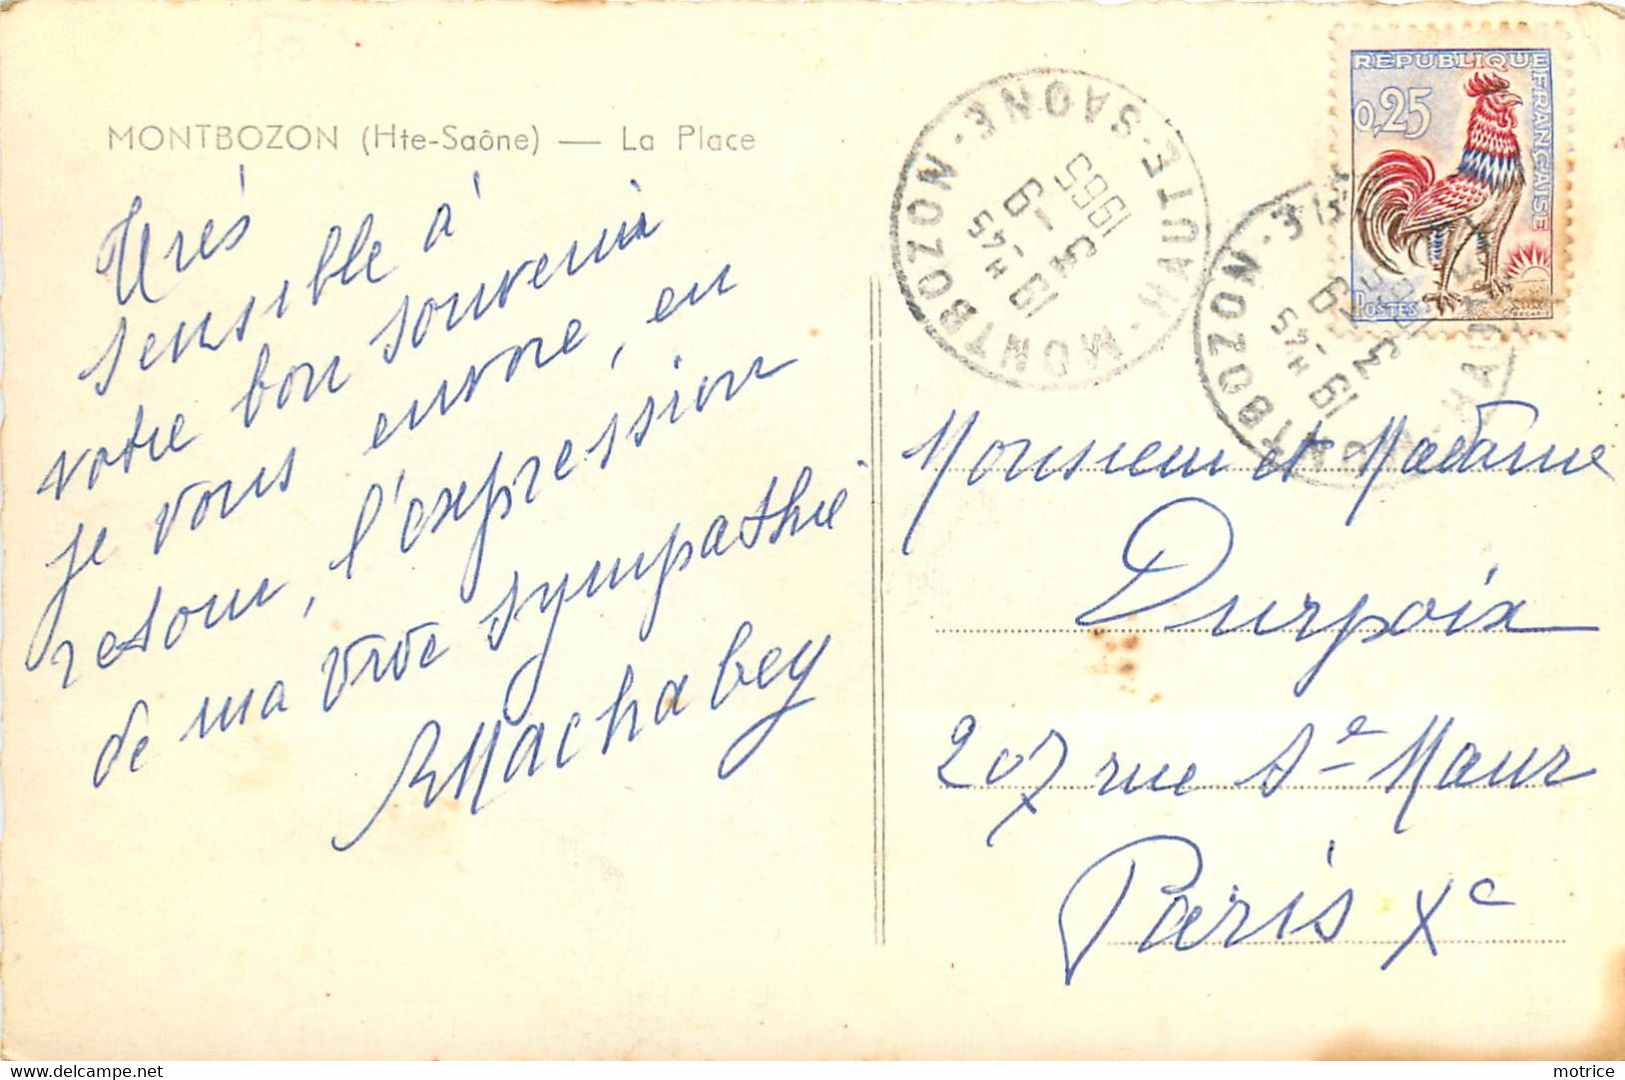 MONTBOZON (Hte-Saône) — La Place
Très
sensible à
votre bon souvenir
je vous envoie, en
retour, l'expression
de ma vive sympathie
Machabey
MONTBOZON · HAUTE-SAONE ·
19 H 45
1965
REPUBLIQUE FRANÇAISE
0,25
POSTES
Monsieur et Madame
Durpoix
207 rue St-e Maur
Paris Xe
motrice